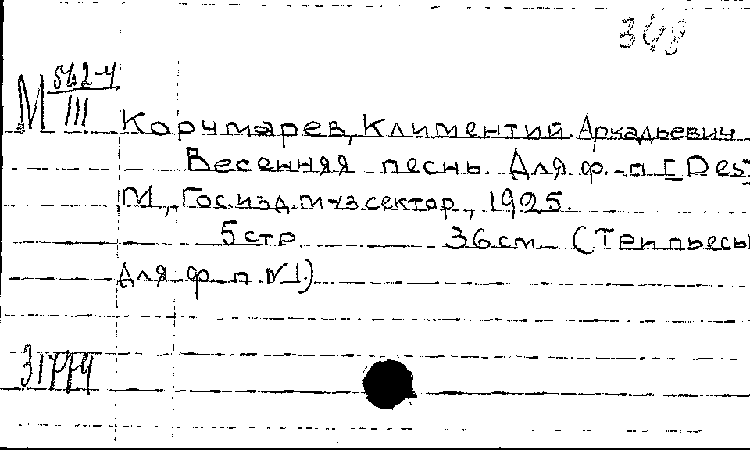 348
М 562-4/III
Корчмарев, Климентий Аркадьевич
Весенняя песнь. Для ф.-п [Des
М., Госизд. музсектор, 1925.
5 стр 36 см (Три пьесы
для ф. п. №1)